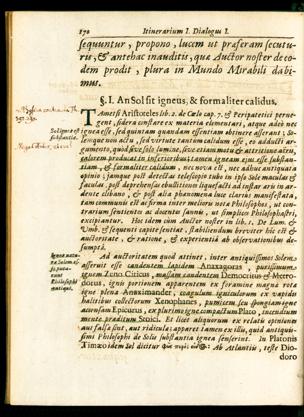 170 Itinerarium I. Dialogus I.
sequuntur, propono, lucem ut præferam secutu-
ris, & antehac inauditis, quæ Auctor noster de eo-
dem prodit, plura in Mundo Mirabili dabi-
mus.
§. I. An Sol sit igneus, & formaliter calidus.
Tametsi Aristoteles lib. 2. de Cælo cap. 7. & Peripatetici perne-
gent, sidera constare ex materia elementari, atque adeò nec
ignea esse, sed quintam quandam essentiam obtinere asserant; So-
lemque non actu, sed virtute tantùm calidum esse, eo adducti ar-
gumento, quòd
calorem producat in inferioribus; tamen igneam ejus esse substan-
tiam, & formaliter calidum, nec nova est, nec adhuc antiquata
opinio; jamque post detectas telescopio in ipso Sole maculas &
faculas, post deprehensas ebullitiones
dente clibano, & post alia phænomena luce clariùs manifestata,
tam communis est ac firma inter melioris nota Philosophos, ut con-
trarium sentientes
excipiantur. Hoc idem cùm Auctor noster in lib. 1. De Lum. &
Umb. & sequenti capite sentiat, stabiliendum breviter hîc est &
auctoritate, & ratione, & experientiâ ab observationibus de-
sumptâ.
Ad auctoritatem quod attinet, inter antiquissimos Solem
asseruit esse candentem lapidem Anaxagoras, purissimum
ignem Zeno Citicus, massam candentem Democritus & Metro-
dorus, ignis portionem apparentem ex foramine magna rota
igne plena Anaximander, coagulum igniculorum ex vapidis
halitibus collectorum Xenophanes, pumicem seu spongiam igne
accensam Epicurus, ex plurimo igne compactum Plato, incendium
mente præditum Stoici. Et licet aliquorum ex relatis opinion
aut falsa sint, aut ridicula; apparet tamen ex illis, quòd antiquis-
simi Philosophi de Solis substantia ignea senserint. In Platonis
Timæo idem Sol dicitur Ab Atlantio, teste Dio-
doro
Sol igneus est
substantiæ.
Ignea natu-
ræ Solem es-
se putarunt
Philosophi
antiqui.